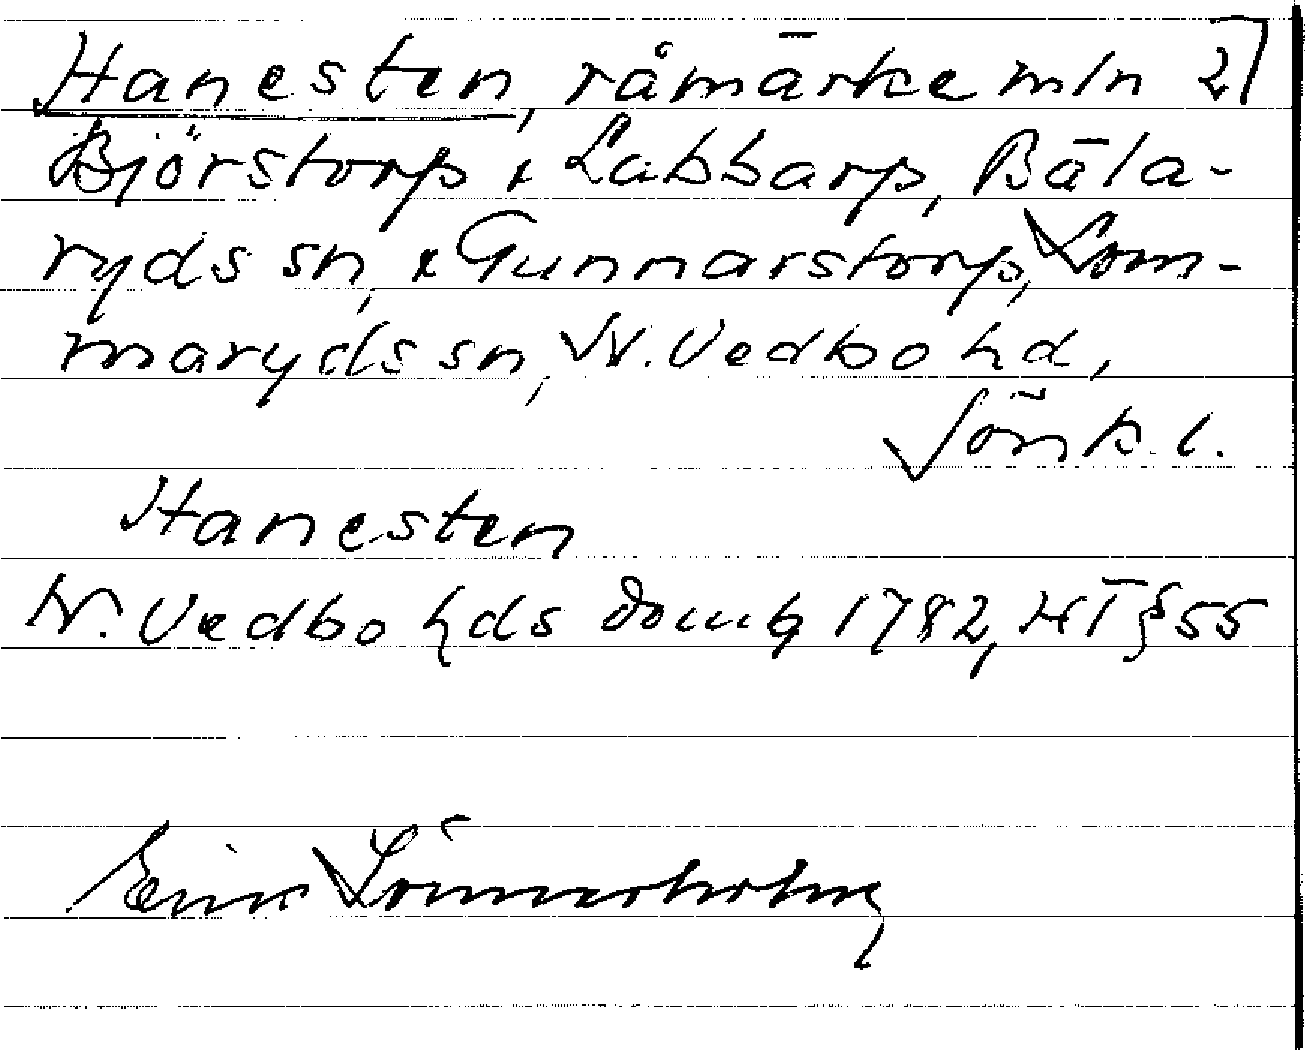 Hanesten, råmärke mln 2]
Björstorp & Labbarp, Bäla-
ryds sn, & Gunnarstorp, Lom-
maryds sn, N. Vedbo hd,
Jönk. l.
Hanesten
N. Vedbo hds domb 1782, HT § 55
Einar Lönnerholm